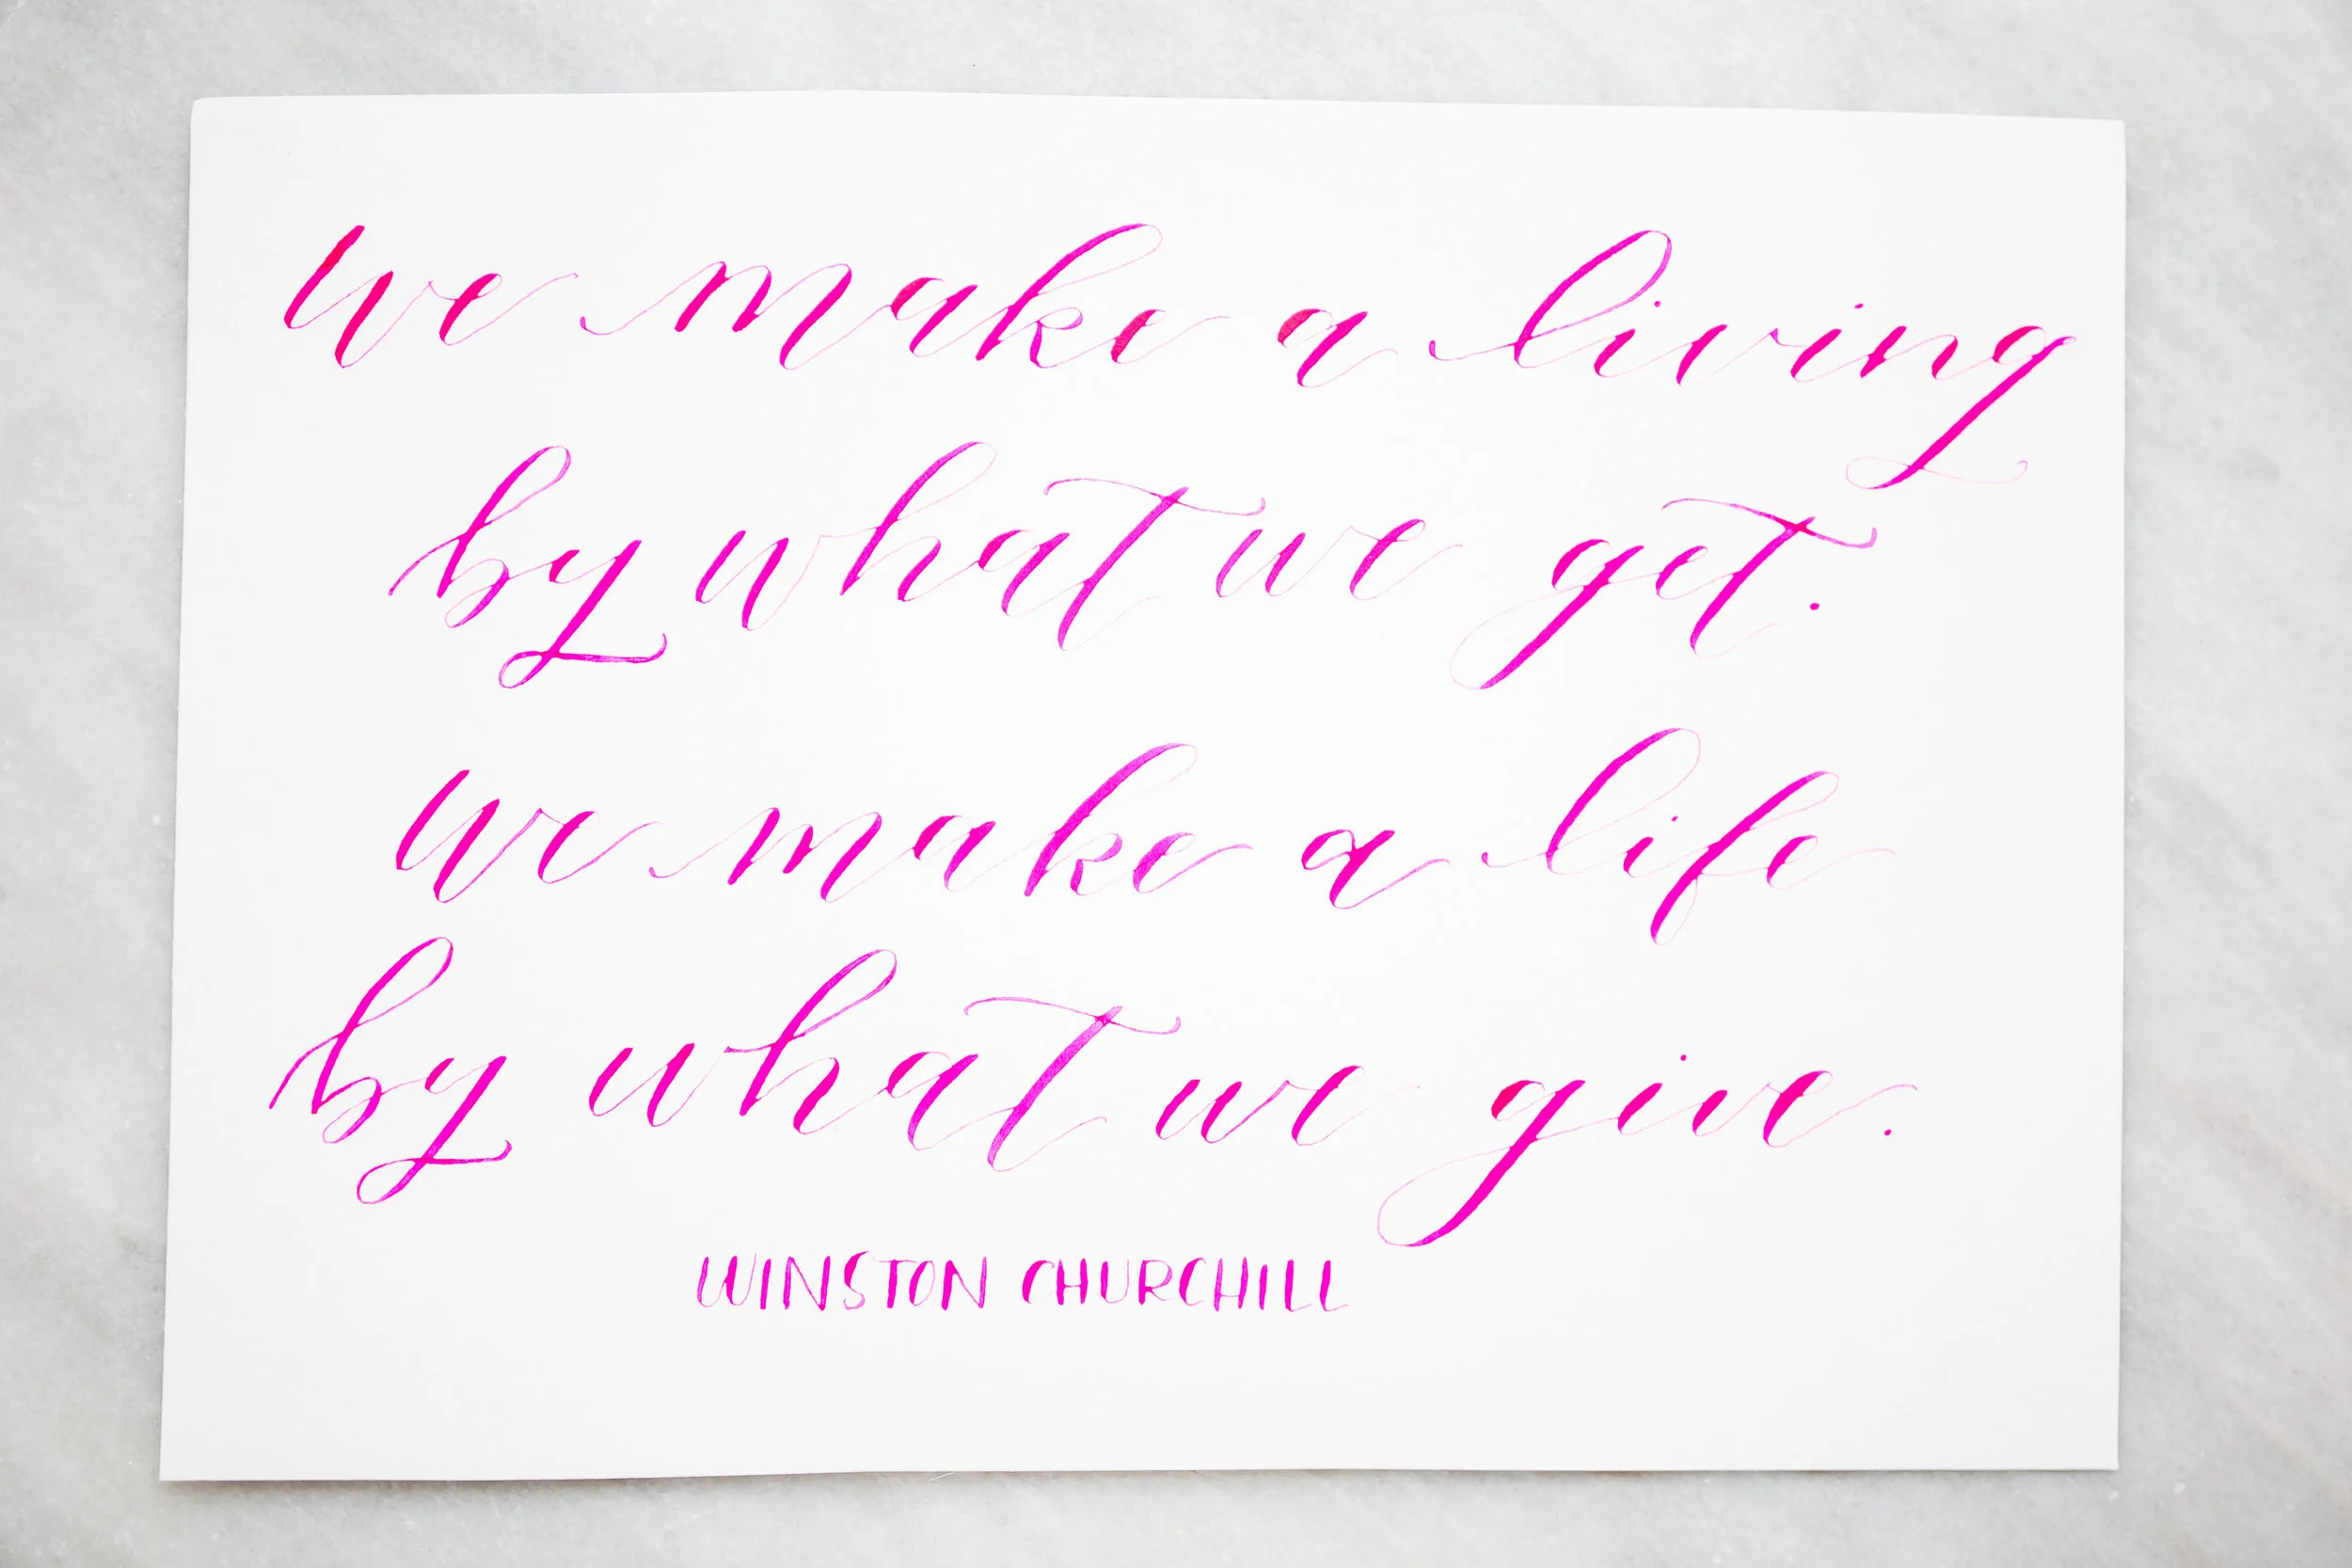 we make a living
by what we get.
we make a life
by what we give.
WINSTON CHURCHILL